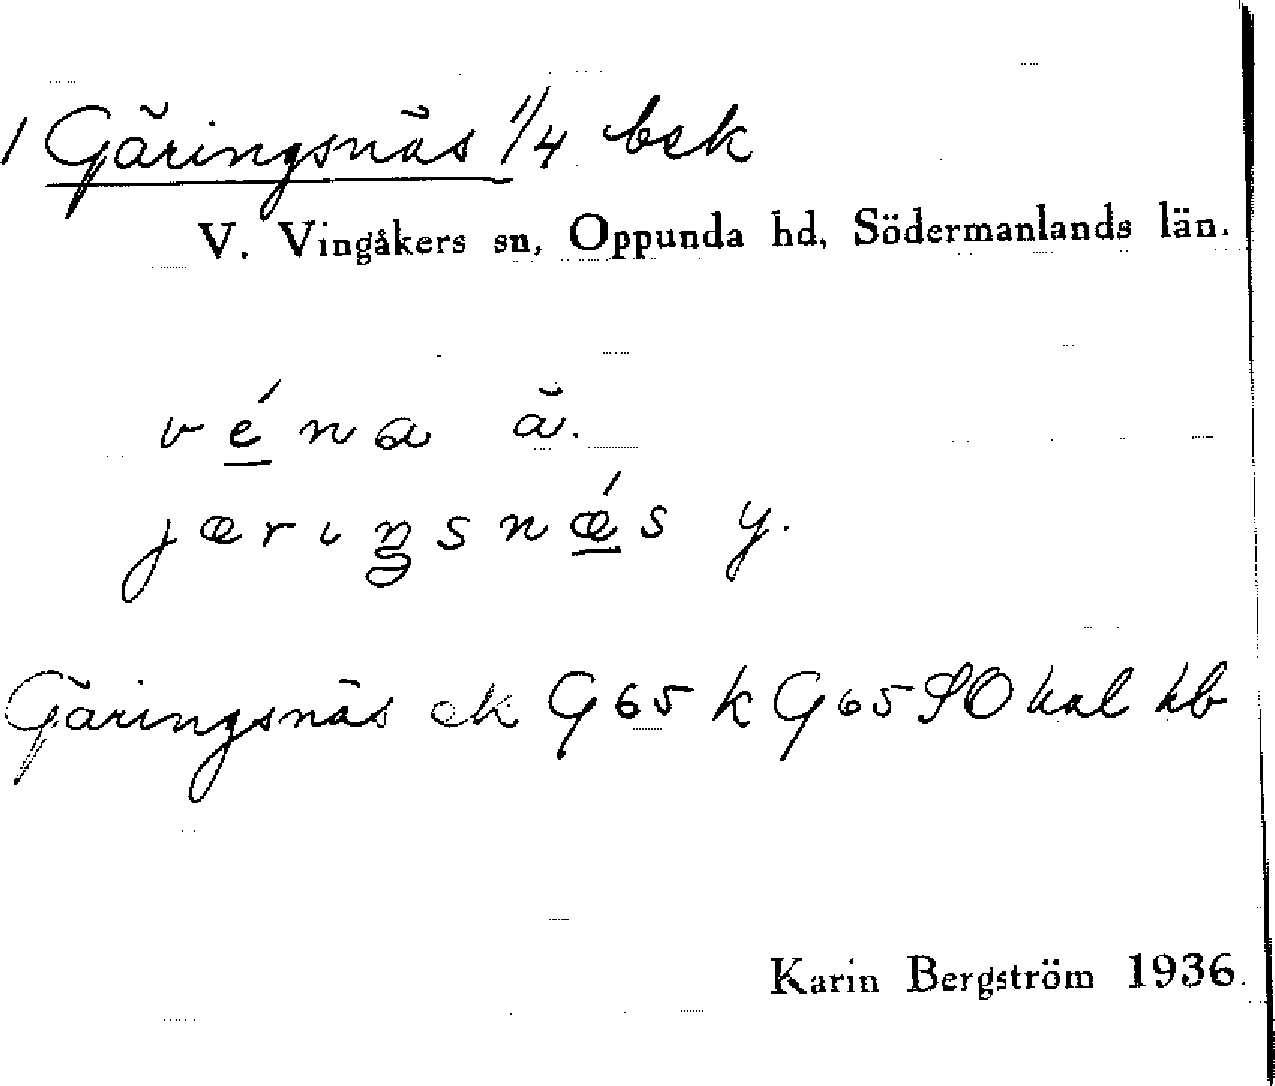 1 Gäringsnäs 1/4 bsk
V. Vingåkers sn, Oppunda hd, Södermanlands län.
véna ä.
jærıŋsnǽs y.
Gäringsnäs ek G65 k G65 SO kal hb
Karin Bergström 1936.